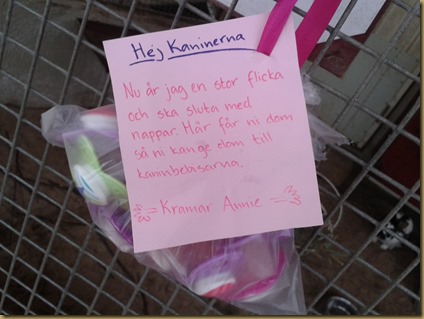 Hej Kaninerna
Nu är jag en stor flicka
och ska sluta med
nappar. Här får ni dom
så ni kan ge dom till
kaninbebisarna.
Kramar Annie